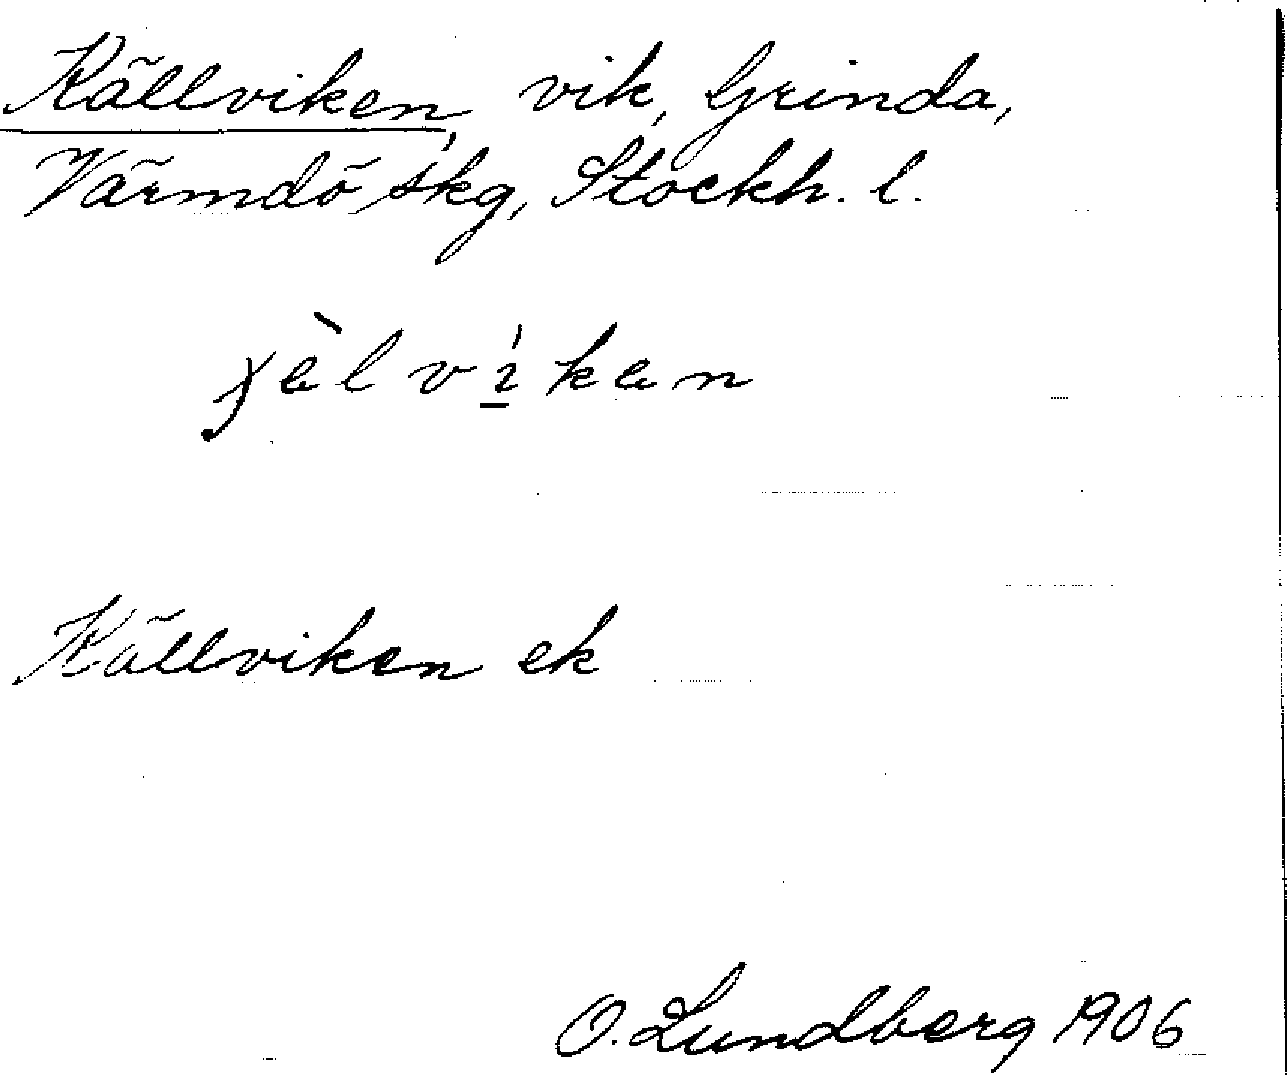 Källviken, vik, Grinda,
Värmdö skg, Stockh. l.
Källviken ek
O. Lundberg 1906